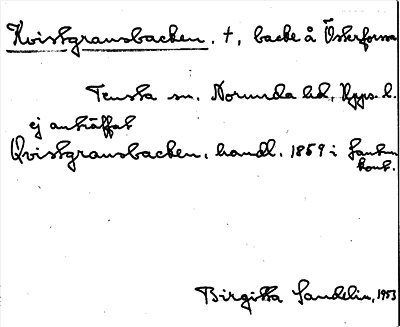 Kvistgransbacken, †, backe å Österforsa
Tensta sn. Norunda hd. Upps. l.
ej anträffat
Qvistgransbacken, handl. 1859 i Lantm
kont.
Birgitta Sandelin, 1953